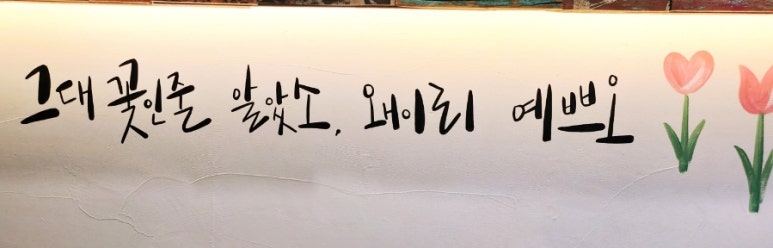 그대 꽃인줄 알았소, 왜이리 예쁘오